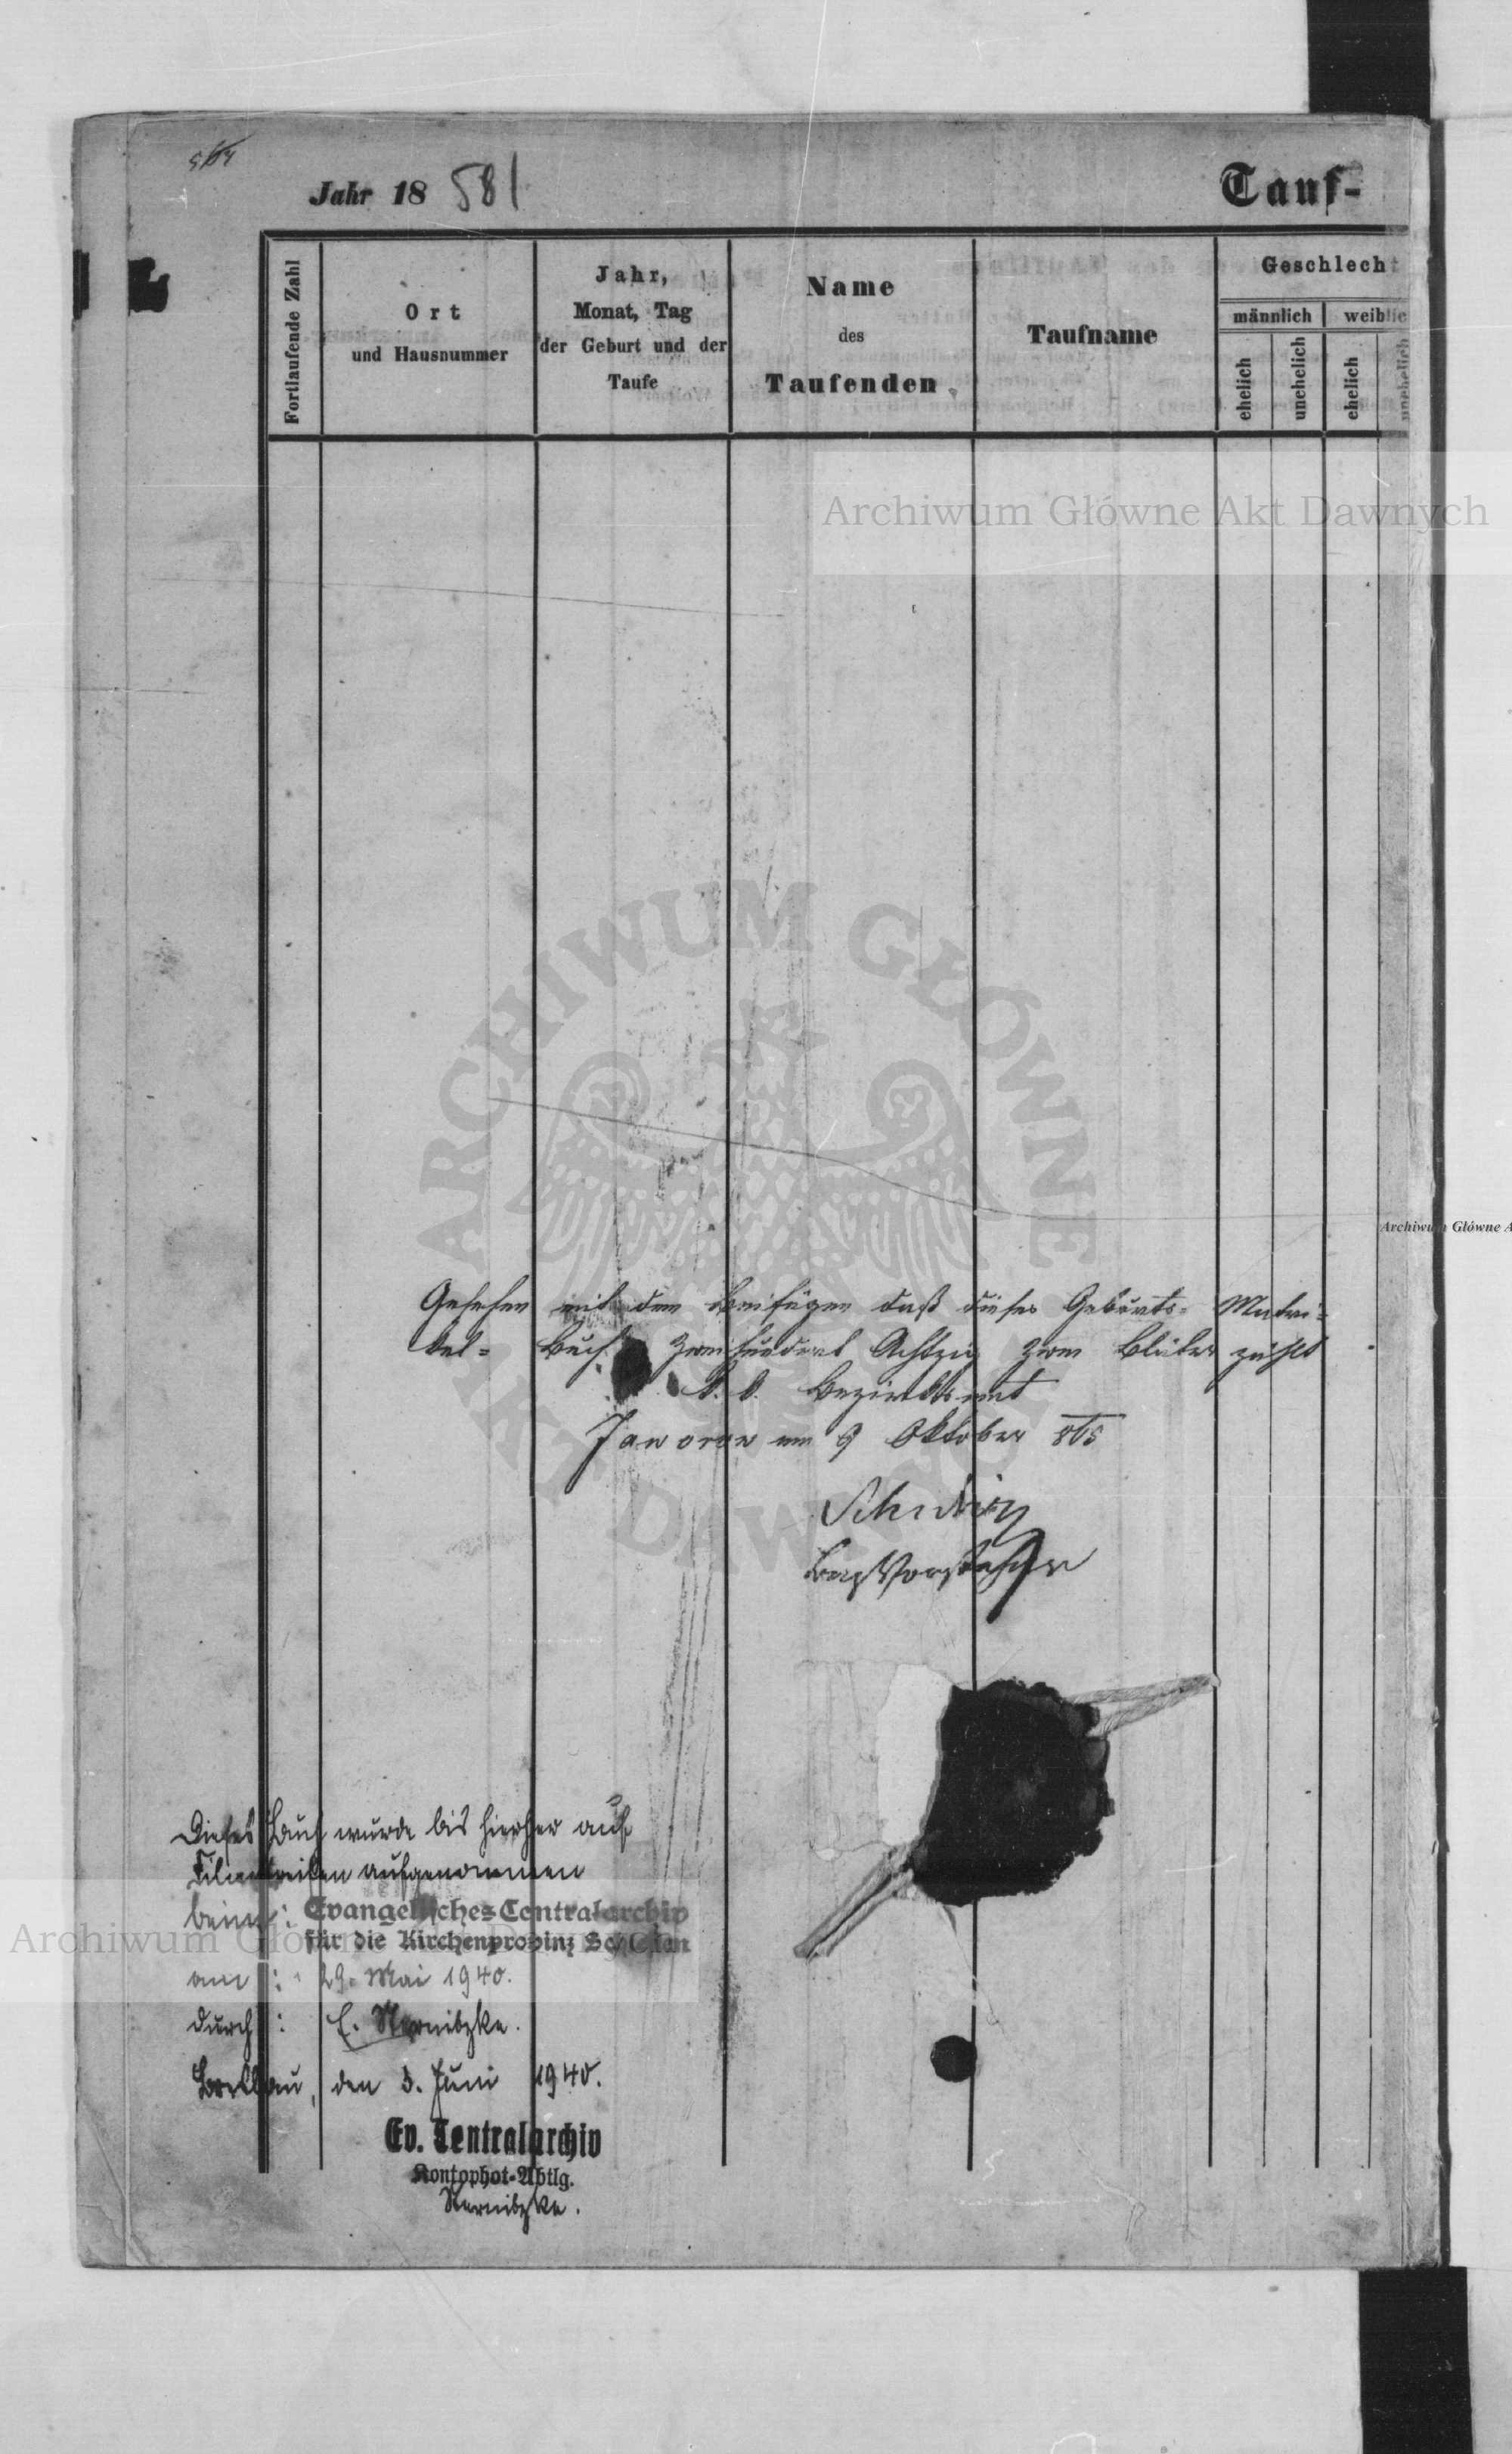 Jahr 18 581
Tauf-
Fortlaufende Zahl
Ort
und Hausnummer
Jahr,
Monat, Tag
der Geburt und der
Taufe
Name
des
Taufenden
Taufname
Geschlecht
männlich
weiblic
ehelich
unehelich
ehelich
unehelich
Archiwum Główne Akt Dawnych
ARCHIWUM GŁÓWNE AKT DAWNYCH
Archiwum Główne A
Gesehen mit dem Beifügen daß dieses Geburts- Matri-
kel- Buch zweihundert Achtzig zwei Bläter zählt
K. k. Bezirksamt
Jaworow am 9 Oktober 865
BezVorsteher
Dieses Buch wurde bis hierher auf
Filmstreifen aufgenommen
beim: Evangelisches Centralarchiv
für die Kirchenprovinz Schlesien
Archiwum Główne Akt Dawnych
am: 29. Mai 1940.
durch: E. Sternitzke.
Breslau, den 3. Juni 1940.
Ev. Centralarchiv
Kontophot-Abtlg.
Sternitzke.